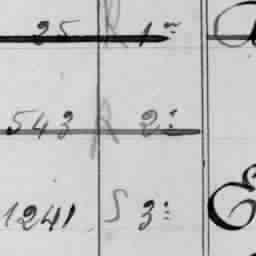 25 R 1:
543 R 2:
1241 S 3: